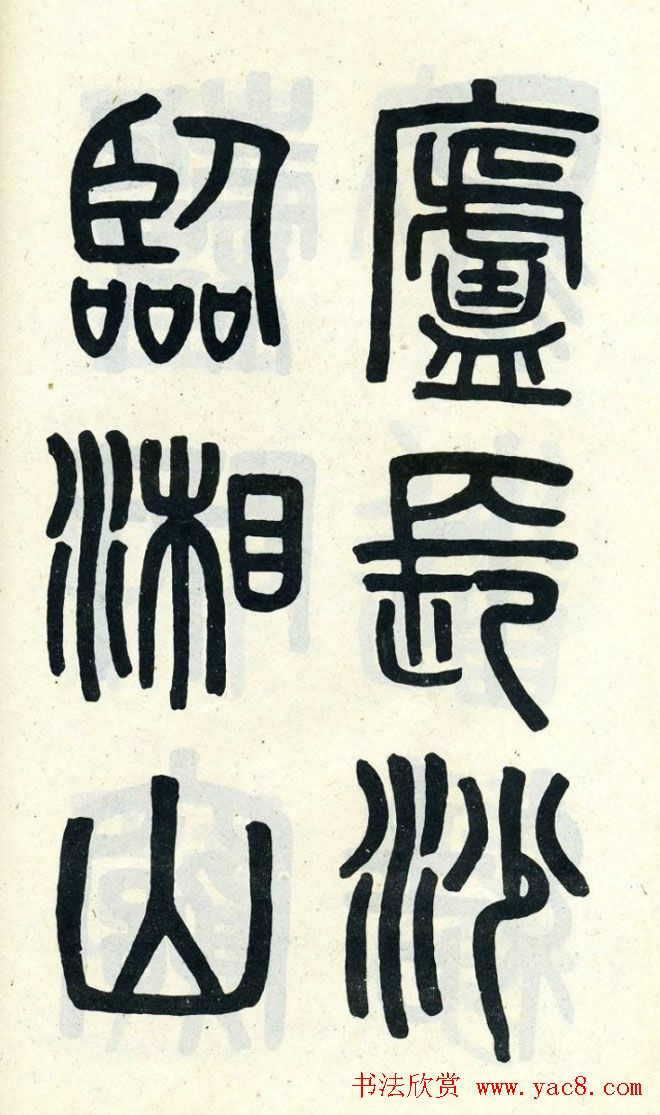 廬長沙
臨湘山
书法欣赏 www.yac8.com